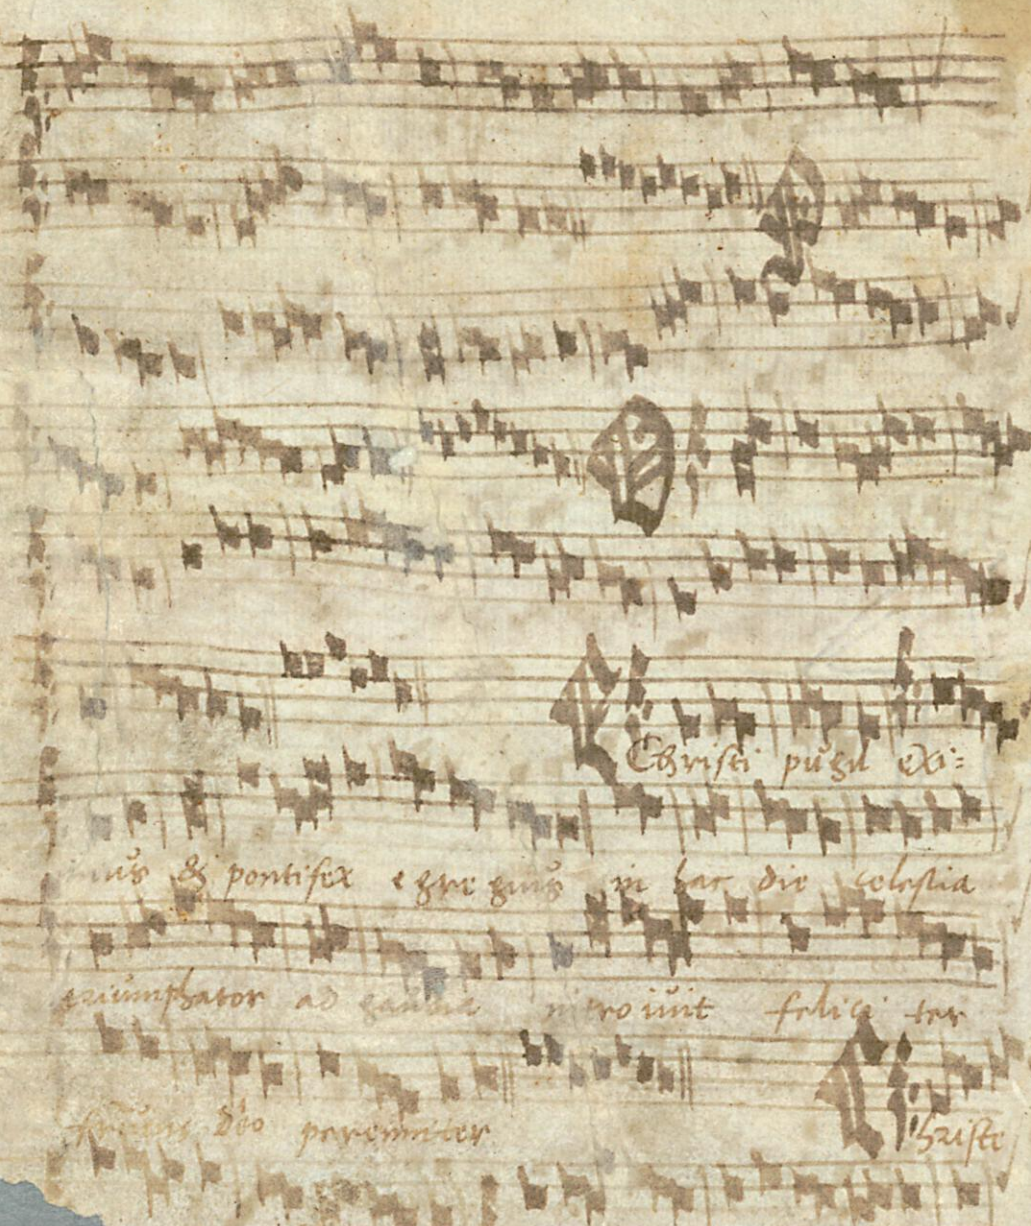 Christi pugil exi=
mius & pontifex egregius in hac die celestia
triumphator ad gaudia introiuit felici ter
perenniter
hriste